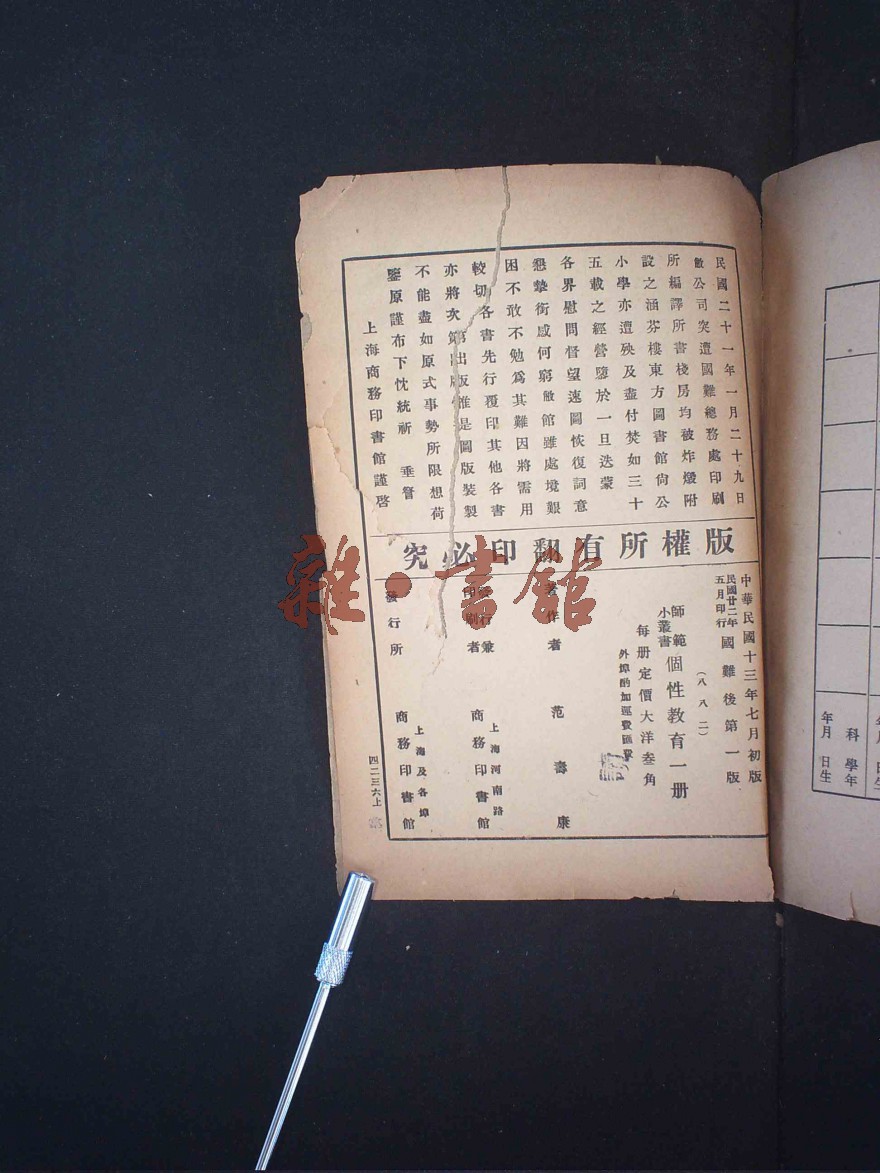 民國二十一年一月二十九日
敝公司突遭國難總務處印刷
所編譯所書棧房均被炸燬附
設之涵芬樓東方圖書館尙公
小學亦遭殃及盡付焚如三十
五載之經營隳於一旦迭蒙
各界慰問督望速圖恢復詞意
懇摯銜感何窮敝館雖處境艱
困不敢不勉爲其難因將需用
較切各書先行覆印其他各書
亦將次第出版惟是圖版裝製
不能盡如原式事勢所限想荷
鑒原謹布下忱統祈 垂詧
上海商務印書館謹啓
版權所有翻印必究
中華民國十三年七月初版
民國廿二年五月印行 國難後第一版
(八八二)
師範小叢書 個性教育一册
每册定價大洋叁角
外埠酌加運費匯費
著作者 范壽康
發行兼印刷者 上海河南路 商務印書館
發行所 上海及各埠 商務印書館
四二三六上
雜·書館
科學年
年月日生